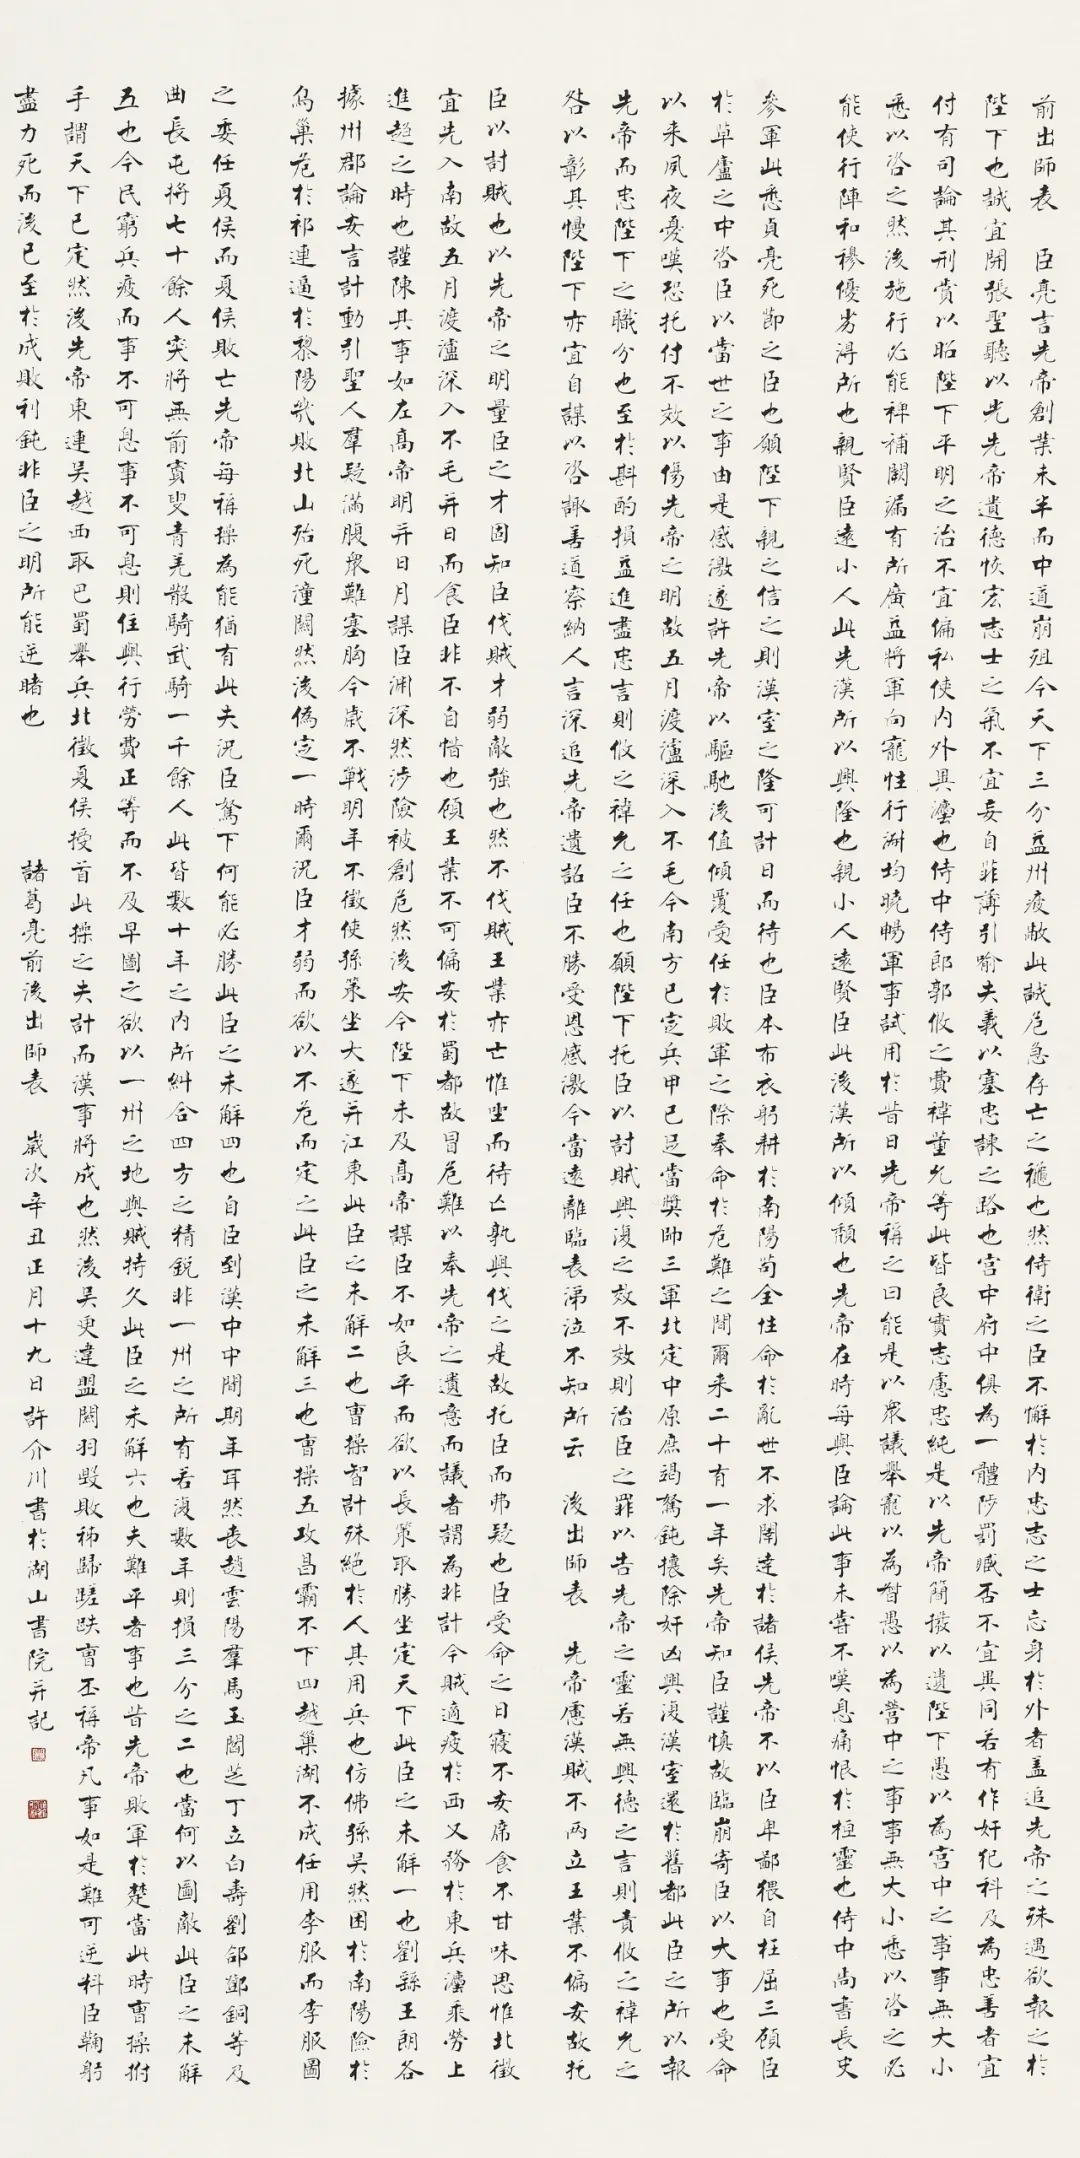 前出師表 臣亮言先帝創業未半而中道崩殂今天下三分益州疲敝此誠危急存亡之穐也然侍衛之臣不懈於內忠志之士忘身於外者蓋追先帝之殊遇欲報之於
陛下也誠宜開張聖聽以光先帝遺德恢宏志士之氣不宜妄自菲薄引喻失義以塞忠諫之路也宮中府中俱為一體陟罰臧否不宜異同若有作奸犯科及為忠善者宜
付有司論其刑賞以昭陛下平明之治不宜偏私使內外異灋也侍中侍郎郭攸之費禕董允等此皆良實志慮忠純是以先帝簡拔以遺陛下愚以為宮中之事事無大小
悉以咨之然後施行必能裨補闕漏有所廣益將軍向寵性行淑均曉暢軍事試用於昔日先帝稱之曰能是以眾議舉寵以為督愚以為營中之事事無大小悉以咨之必
能使行陣和穆優劣得所也親賢臣遠小人此先漢所以興隆也親小人遠賢臣此後漢所以傾頹也先帝在時每與臣論此事未嘗不嘆息痛恨於桓靈也侍中尚書長史
參軍此悉貞亮死節之臣也願陛下親之信之則漢室之隆可計日而待也臣本布衣躬耕於南陽苟全性命於亂世不求聞達於諸侯先帝不以臣卑鄙猥自枉屈三顧臣
於草廬之中咨臣以當世之事由是感激遂許先帝以驅馳後值傾覆受任於敗軍之際奉命於危難之間爾來二十有一年矣先帝知臣謹慎故臨崩寄臣以大事也受命
以來夙夜憂嘆恐托付不效以傷先帝之明故五月渡瀘深入不毛今南方已定兵甲已足當獎帥三軍北定中原庶竭駑鈍攘除奸凶興復漢室還於舊都此臣之所以報
先帝而忠陛下之職分也至於斟酌損益進盡忠言則攸之禕允之任也願陛下托臣以討賊興復之效不效則治臣之罪以告先帝之靈若無興德之言則責攸之禕允之
咎以彰其慢陛下亦宜自謀以咨諏善道察納人言深追先帝遺詔臣不勝受恩感激今當遠離臨表涕泣不知所云 後出師表 先帝慮漢賊不兩立王業不偏安故托
臣以討賊也以先帝之明量臣之才固知臣伐賊才弱敵強也然不伐賊王業亦亡惟坐而待亡孰與伐之是故托臣而弗疑也臣受命之日寢不安席食不甘味思惟北徵
宜先入南故五月渡瀘深入不毛并日而食臣非不自惜也顧王業不可偏安於蜀都故冒危難以奉先帝之遺意而議者謂為非計今賊適疲於西又務於東兵灋乘勞上
進趨之時也謹陳其事如左高帝明并日月謀臣淵深然涉險被創危然後安今陛下未及高帝謀臣不如良平而欲以長策取勝坐定天下此臣之未解一也劉繇王朗各
據州郡論安言計動引聖人羣疑滿腹眾難塞胸今歲不戰明年不徵使孫策坐大遂并江東此臣之未解二也曹操智計殊絕於人其用兵也仿佛孫吳然困於南陽險於
烏巢危於祁連逼於黎陽幾敗北山殆死潼關然後偽定一時爾況臣才弱而欲以不危而定之此臣之未解三也曹操五攻昌霸不下四越巢湖不成任用李服而李服圖
之委任夏侯而夏侯敗亡先帝每稱操為能猶有此失況臣駑下何能必勝此臣之未解四也自臣到漢中中間期年耳然喪趙雲陽羣馬玉閻芝丁立白壽劉郃鄧銅等及
曲長屯將七十餘人突將無前賨叟青羌散騎武騎一千餘人此皆數十年之內所糾合四方之精銳非一州之所有若復數年則損三分之二也當何以圖敵此臣之未解
五也今民窮兵疲而事不可息事不可息則住與行勞費正等而不及早圖之欲以一州之地與賊持久此臣之未解六也夫難平者事也昔先帝敗軍於楚當此時曹操拊
手謂天下已定然後先帝東連吳越西取巴蜀舉兵北徵夏侯授首此操之失計而漢事將成也然後吳更違盟關羽毀敗秭歸蹉跌曹丕稱帝凡事如是難可逆料臣鞠躬
盡力死而後已至於成敗利鈍非臣之明所能逆睹也 諸葛亮前後出師表 歲次辛丑正月十九日許介川書於湖山書院并記